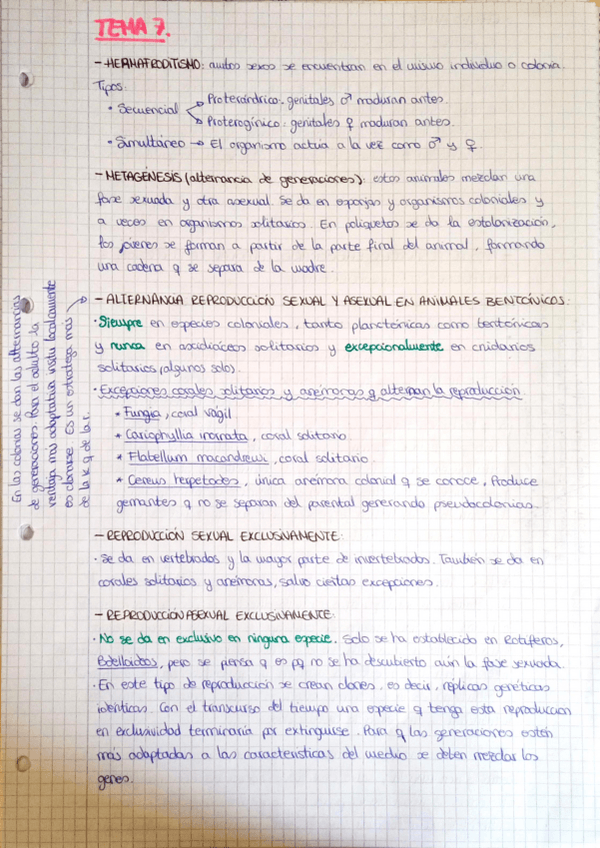 TEMA 7.
- HERMAFRODITISMO: ambos sexos se encuentran en el mismo individuo o colonia.
Tipos:
• Secuencial → Proterándrico: genitales ♂ maduran antes.
→ Proterogínico: genitales ♀ maduran antes.
• Simultáneo → El organismo actúa a la vez como ♂ y ♀.
- METAGÉNESIS (alternancia de generaciones): estos animales mezclan una
fase sexuada y otra asexual. Se da en esponjas y organismos coloniales y
a veces en organismos solitarios. En poliquetos se da la estolonización,
los jóvenes se forman a partir de la parte final del animal, formando
una cadena q se separa de la madre.
- ALTERNANCIA REPRODUCCIÓN SEXUAL Y ASEXUAL EN ANIMALES BENTÓNICOS:
· Siempre en especies coloniales, tanto planctónicas como bentónicas
y nunca en ascidiáceos solitarios y excepcionalmente en cnidarios
solitarios (algunos solo).
· Excepciones corales solitarios y anémonas q alternan la reproducción
* Fungia, coral vágil
* Cariophyllia inornata, coral solitario
* Flabellum macandrewi, coral solitario.
* Cereus herpetodes, única anémona colonial q se conoce. Produce
gemantes q no se separan del parental generando pseudocolonias.
En las colonias se dan las alternancias
de generaciones. Para el adulto la
ventaja más adaptativa vista localmente
es clonarse. Es un estratega más
de la k q de la r.
- REPRODUCCIÓN SEXUAL EXCLUSIVAMENTE:
· Se da en vertebrados y la mayor parte de invertebrados. También se da en
corales solitarios y anémonas, salvo ciertas excepciones.
- REPRODUCCIÓN ASEXUAL EXCLUSIVAMENTE:
· No se da en exclusivo en ninguna especie. Solo se ha establecido en Rotíferos,
Bdelloidos, pero se piensa q es pq no se ha descubierto aún la fase sexuada.
· En este tipo de reproducción se crean clones, es decir, réplicas genéticas
idénticas. Con el transcurso del tiempo una especie q tenga esta reproducción
en exclusividad terminaría por extinguirse. Para q las generaciones estén
más adaptadas a las características del medio se deben mezclar los
genes.